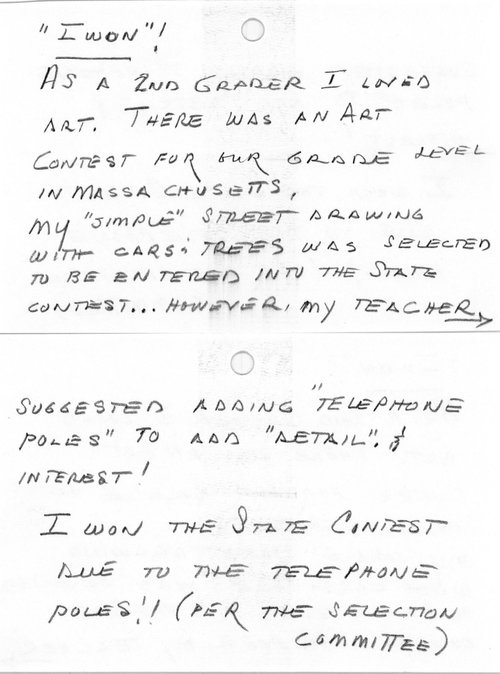 "I WON"!
AS A 2ND GRADER I LOVED
ART. THERE WAS AN ART
CONTEST FOR OUR GRADE LEVEL
IN MASSACHUSETTS,
MY "SIMPLE" STREET DRAWING
WITH CARS & TREES WAS SELECTED
TO BE ENTERED INTO THE STATE
CONTEST... HOWEVER, MY TEACHER →
SUGGESTED ADDING "TELEPHONE
POLES" TO ADD "DETAIL". &
INTEREST!
I WON THE STATE CONTEST
DUE TO THE TELEPHONE
POLES!! (PER THE SELECTION
COMMITTEE)